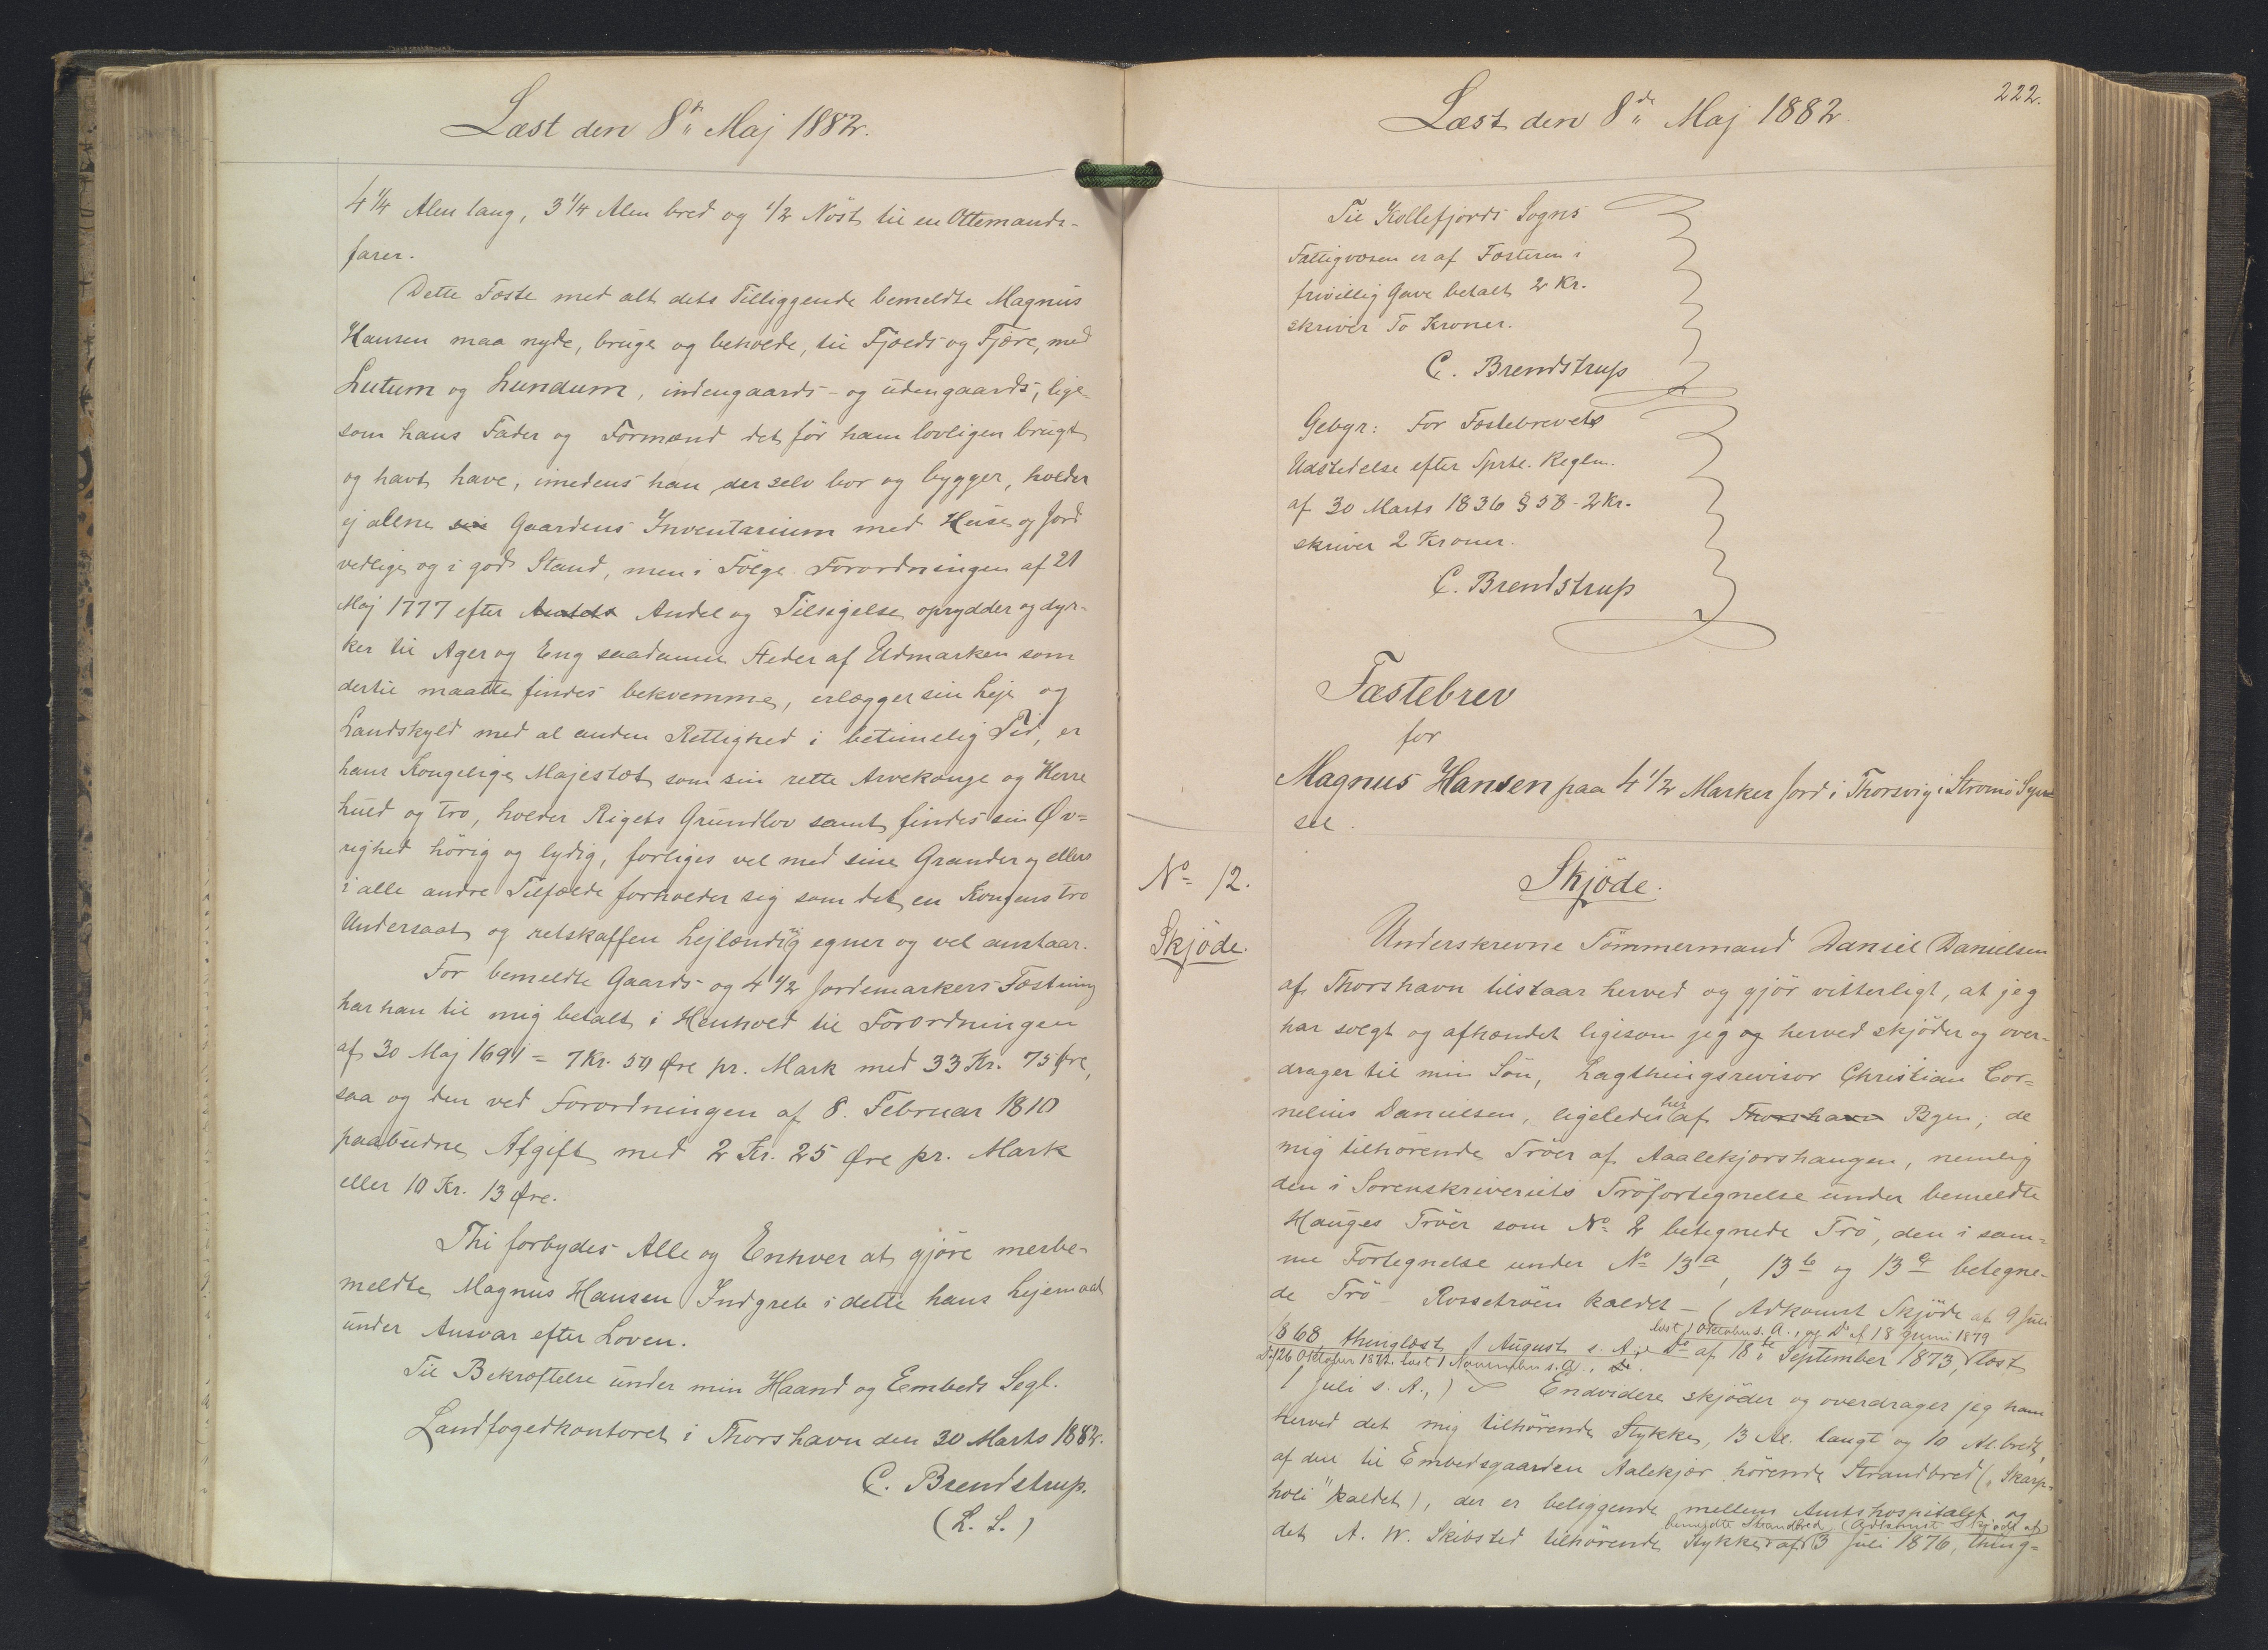 Læst den 8de Maj 1882.
4 1/4 Alen lang, 3 1/4 Alen bred og 1/2 Nöst til en Ottemands-
farer.
Dette Fæste med alt dets Tilliggende bemeldte Magnus
Hansen maa nyde, bruge og beholde, til Fjælds og Fjære, med
Lutum og Lundum, indengaards- og udengaards, lige
som hans Fader og Formænd det för ham lovligen brugt
og havt have, imedens han der selv bor og bygger, holder
ej alene sin Gaardens Inventarium med Huse og Jord
vedlige og i god Stand, men i Fölge Forordningen af 21
Maj 1777 efter Andels Andel og Tilsigelse oprydder og dyr-
ker til Ager og Eng saadanne Steder af Udmarken som
dertil maatte findes bekvemme, erlægger sin Leje og
Landskyld med al anden Rettighed i betimelig Tid, er
hans Kongelige Majestæt som sin rette Arvekonge og Herre
huld og tro, holder Rigets Grundlov samt findes sin Øv=
righed hörig og lydig, forliges vel med sine Grander og ellers
i alle andre Tilfælde forholder sig som det en Kongens tro
Undersaat og retskaffen Lejlænding egner og vel anstaar.
For bemeldte Gaards- og 4 1/2 Jordemarkers Fæstning
har han til mig betalt i Henhold til Forordningen
af 30 Maj 1691 = 7 Kr. 50 Øre pr. Mark med 33 Kr. 75 Øre,
saa og den ved Forordningen af 8. Februar 1810
paabudne Afgift med 2 Kr. 25 Øre pr. Mark
eller 10 Kr. 13 Øre.
Thi forbydes Alle og Enhver at gjöre merbe-
meldte Magnus Hansen Indgreb i dette hans Lejemaal
under Ansvar efter Loven.
Til Bekræftelse under min Haand og Embeds Segl.
Landfogedkontoret i Thorshavn den 30 Marts 1882.
C. Brendstrup.
(L. S.)
222.
Læst den 8de Maj 1882.
Til Kollefjords Sogns
Fattigvæsen er af Fæsteren i
frivillig Gave betalt 2 Kr.
skriver To Kroner.
C. Brendstrup
Gebyr: For Fæstebrevets
Udstedelse efter Sprtl. Reglm.
af 30 Marts 1836 § 58 - 2 Kr.
skriver 2 Kroner.
C. Brendstrup
Fæstebrev
for
Magnus Hansen paa 4 1/2 Marker Jord i Thorsvig i Strömö Sys-
sel.
No 12.
Skjöde.
Skjöde.
Underskrevne Tömmermand Daniel Danielsen
af Thorshavn tilstaar herved og gjör vitterligt, at jeg
har solgt og afhændet ligesom jeg og herved skjöder og over-
drager til min Sön, Lagthingsrevisor Christian Cor=
nelius Danielsen, ligeledes her af Thorshavn Byen, de
mig tilhörende Tröer af Aaalekjærshaugen, nemlig
den i Sorenskriveriets Tröfortegnelse under bemeldte
Hauges Tröer som No 2 betegnede Trö, den i sam=
me Fortegnelse under No 13a, 13b og 13c betegne-
de Trö - Rossetröen kaldet - (Adkomst Skjöde af 9 Juli
læst 1 Oktober s. A., og Do af 18 Juni 1879
1868 thinglæst 1 August s. A., Do af 18de September 1873, læst
Do 26 Oktober 1872. læst 1 November s. A., Do.
1 Juli s. A.,) Endvidere skjöder og overdrager jeg ham
herved det mig tilhörende Stykke, 13 Al. langt og 10 Al. bredt,
af den til Embedsgaarden Aalekjær hörende Strandbred („Skarp=
holi" kaldet), der er beliggende mellem Amtshospitalet og
bemeldte Strandbred, (Adkomst Skjöde af
det A. W. Skibsted tilhörende Stykke af 3 Juli 1876, thing=